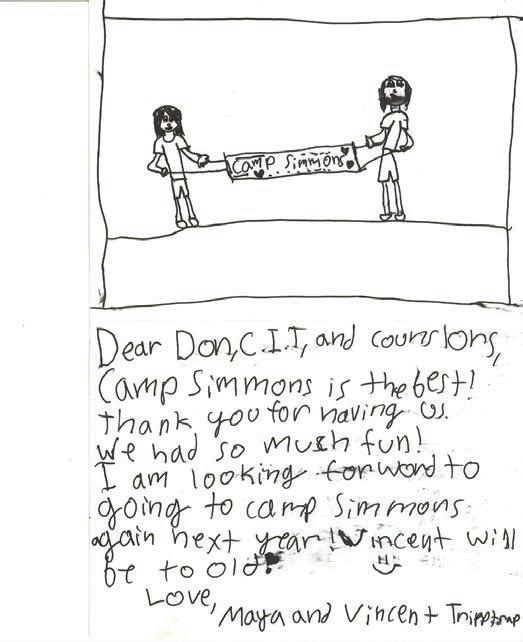 Camp Simmons
Dear Don, C.I.I, and counslons,
Camp Simmons is the best!
thank you for having us.
we had so much fun!
I am looking forword to
going to camp Simmons
again next year! Vincent will
be to old.
Love,
Maya and Vincent